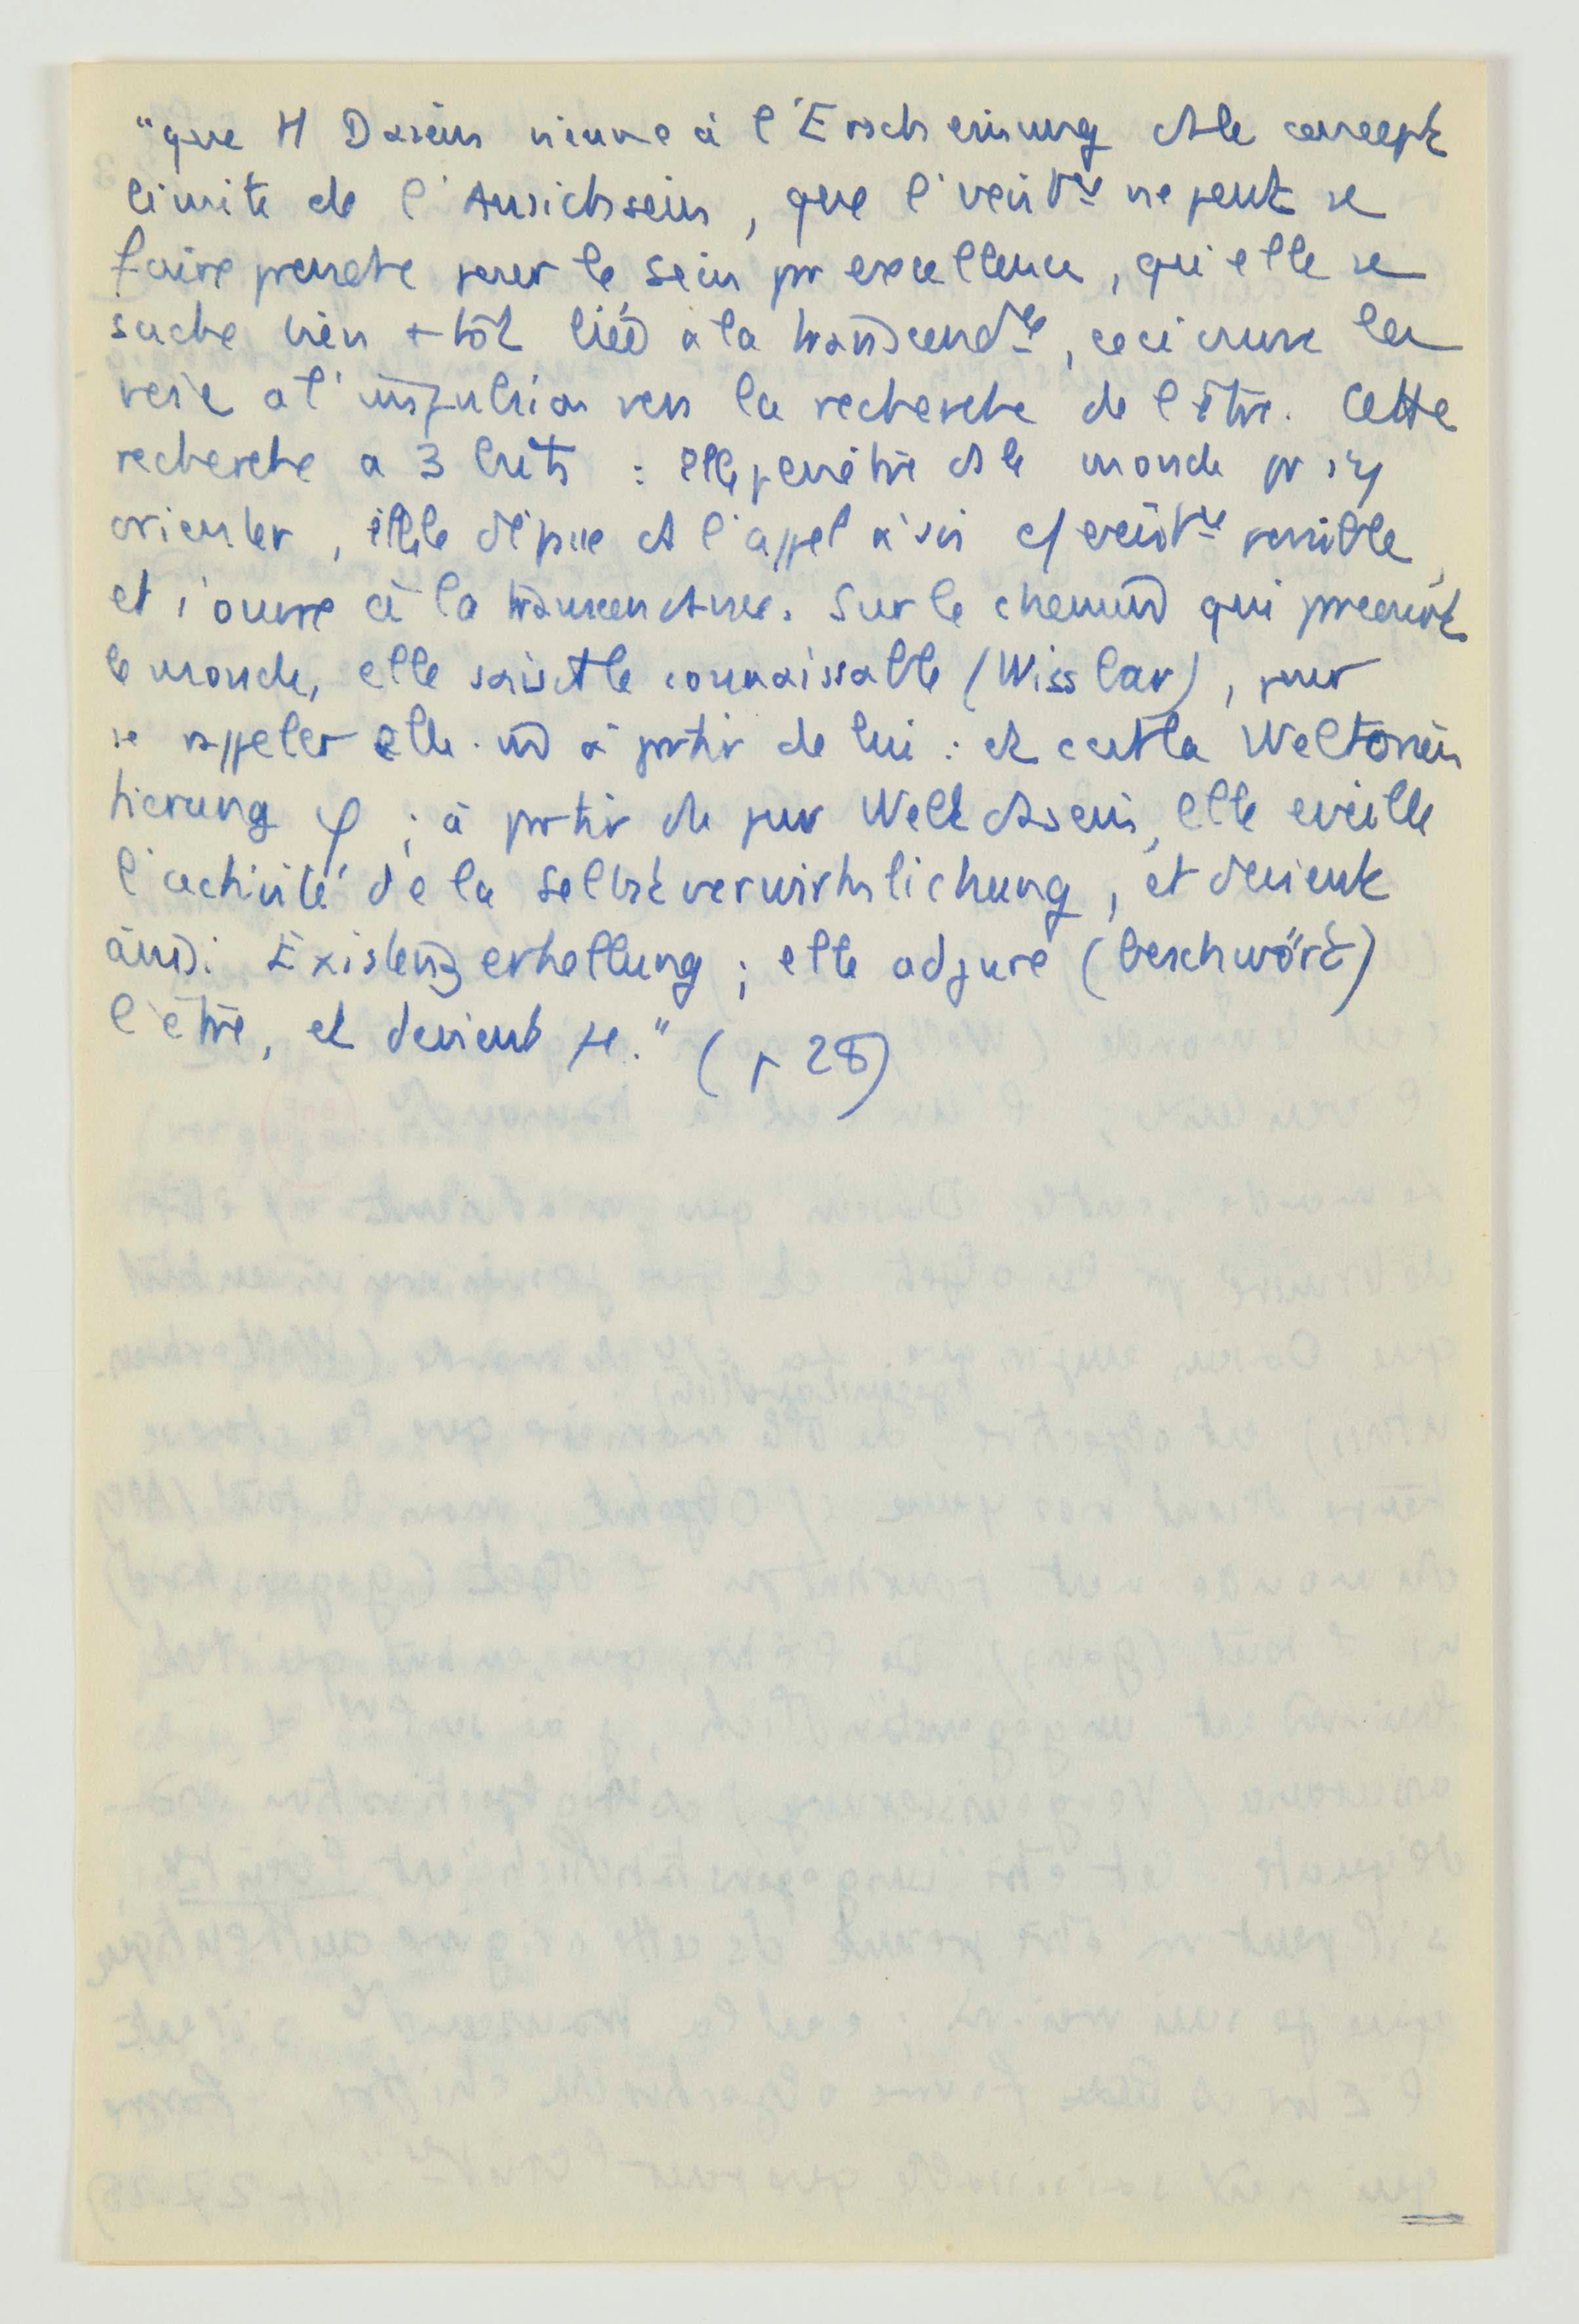 "que tt Dasein vienne à l'Erscheinung ds le concept
limite de l'Ansichsein, que l'exist ce ne peut se
faire prendre pour le Sein pr excellence, qu'elle se
sache bien + tôt liée à la transcend ce, ceci ouvre la
voie à l'impulsion vers la recherche de l'être. Cette
recherche a 3 buts : elle pénètre ds le monde pr s'y
orienter, elle dépasse ds l'appel à soi c/ exist ce possible,
et s'ouvre à la transcendance. Sur le chemin qui parcourt
le monde, elle saisit le connaissable (Wissbar), pour
se rappeler elle-m à partir de lui : et c'est la Weltorien
tierung φ ; à partir du pur Weltdasein, elle éveille
l'activité de la Selbstverwirklichung, et devient
ainsi Existenzerhellung ; elle adjure (beschwört)
l'être, et devient ." (p 28)